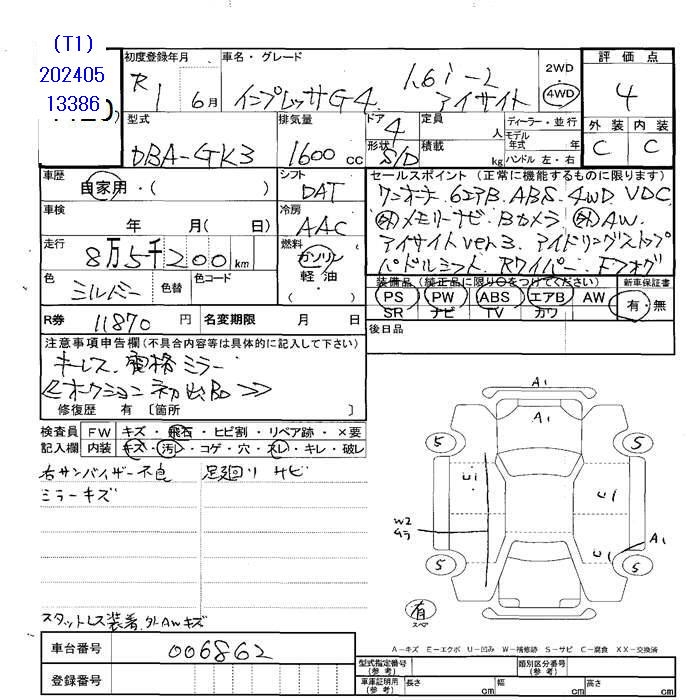 (T1)
202405
13386
初度登録年月
R1 6月
車名・グレード
インプレッサG4 1.6i-L アイサイト
2WD
・
4WD
評価点
4
外装 内装
C C
型式
DBA-GK3
排気量
1600 cc
ドア 4
形状 S/D
定員 人
積載 kg
ディーラー・並行
モデル年式 年
ハンドル 左・右
車歴
自家用・( )
車検
年 月( 日)
走行
8万5千200km
色
シルバー
色替
色コード
シフト
DAT
冷房
AAC
燃料
ガソリン
軽・油
( )
セールスポイント(正常に機能するものに限ります)
ワンオーナ. 6エアB. ABS. 4WD. VDC
外メモリーナビ. Bカメラ 外AW.
アイサイトver.3. アイドリングストップ
パドルシフト Rワイパー. Fフォグ
装備品(純正品に限り○をつけてください)
PS PW ABS エアB AW
SR ナビ TV カワ
新車保証書
有・無
R券 11870 円 名変期限 月 日
後日品
注意事項申告欄(不具合内容等は具体的に記入して下さい)
キーレス. 電格ミラー
≪オークション初出品≫
修復歴 有 〔箇所 〕
検査員 FW キズ・飛石・ヒビ割・リペア跡・×要
記入欄 内装 キズ・汚レ・コゲ・穴・スレ・キレ・破レ
右サンバイザー不良 足廻りサビ
ミラーキズ
スタットレス装着.外AWキズ
A1
A1
5 5
U1 U1
W2
ムラ
U1 A1
5 5
有
スペア
A-キズ E-エクボ U-凹み W-補修跡 S-サビ C-腐食 XX-交換済
車台番号 006862
登録番号
型式指定番号(参考) 類別区分番号(参考)
車庫証明用(参考) 長さ cm 幅 cm 高さ cm